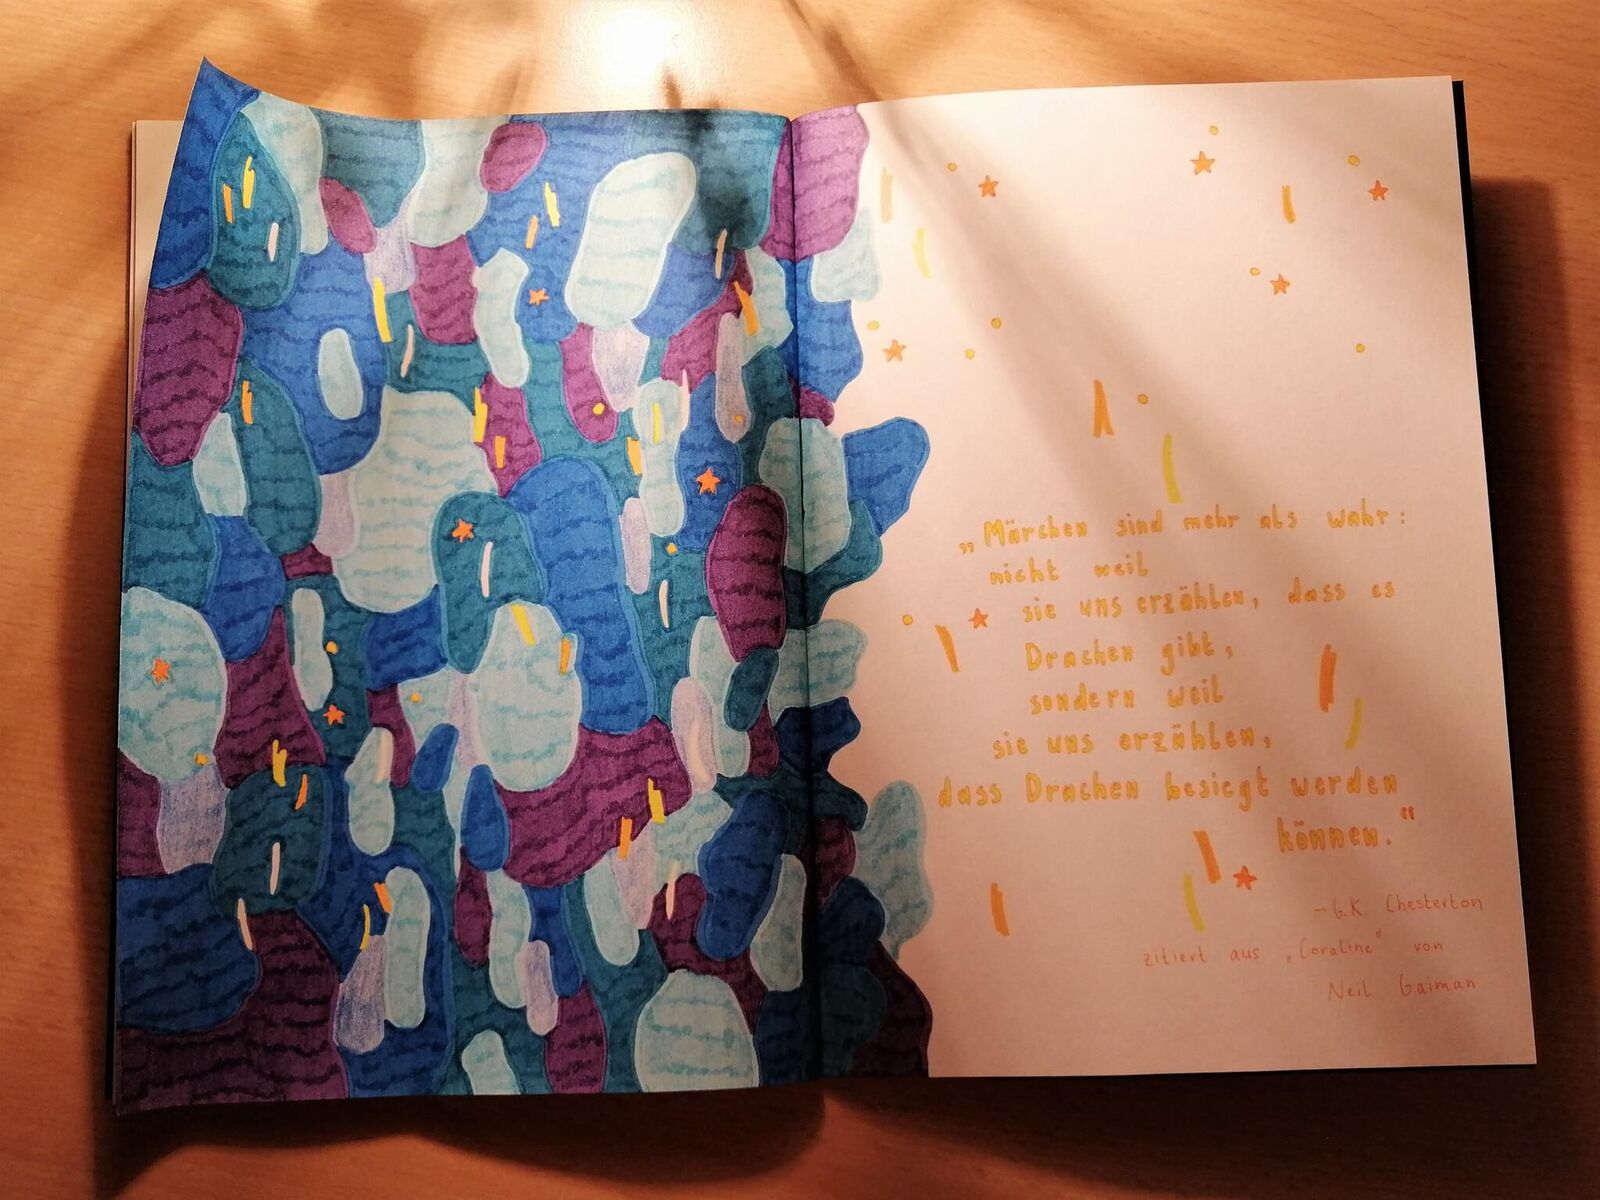 „Märchen sind mehr als wahr:
nicht weil
sie uns erzählen, dass es
Drachen gibt,
sondern weil
sie uns erzählen,
dass Drachen besiegt werden
können.“
- G.K. Chesterton
zitiert aus „Coraline“ von
Neil Gaiman